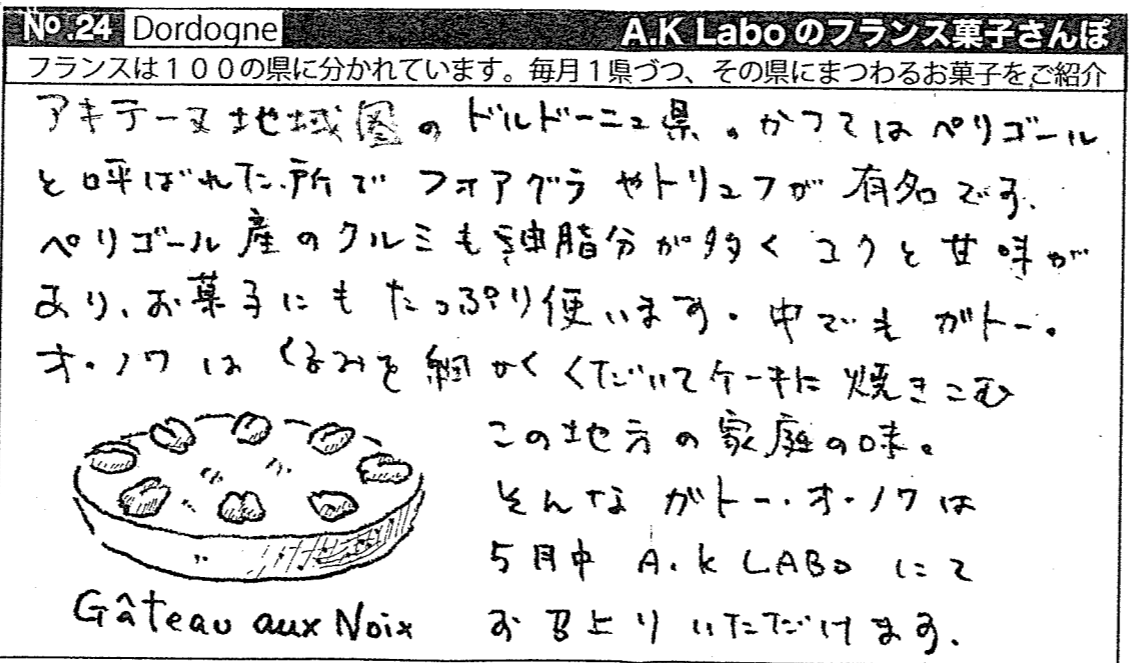 No.24 Dordogne A.K Laboのフランス菓子さんぽ
フランスは１００の県に分かれています。毎月１県づつ、その県にまつわるお菓子をご紹介
アキテーヌ地域圏のドルドーニュ県。かつてはペリゴール
と呼ばれた所でフォアグラやトリュフが有名です。
ペリゴール産のクルミも油脂分が多くコクと甘味が
あり、お菓子にもたっぷり使います。中でもガトー・
オ・ノワはくるみを細かくくだいてケーキに焼きこむ
この地方の家庭の味。
そんなガトー・オ・ノワは
5月中 A.K LABO にて
お召上りいただけます。
Gâteau aux Noix